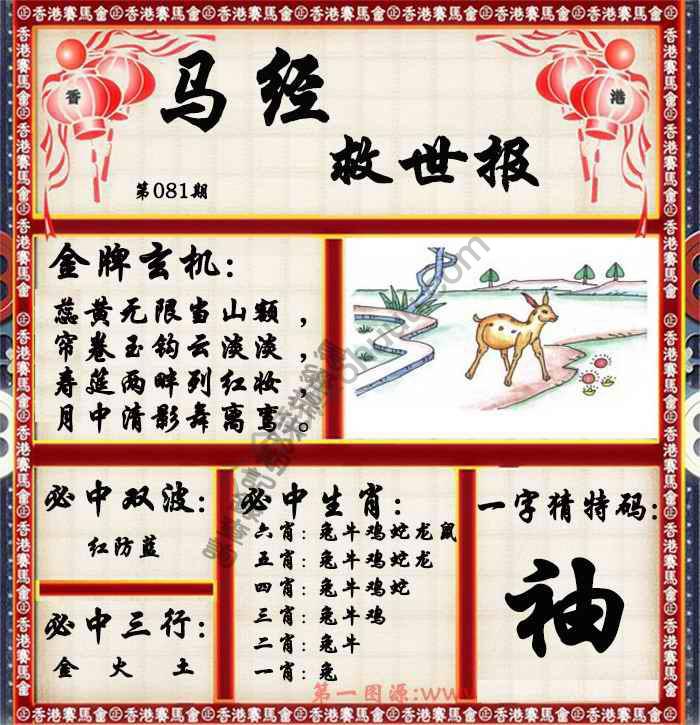 香港賽馬會
香
港
马经
救世报
第081期
金牌玄机：
蕊黄无限当山额，
帘卷玉钩云淡淡，
寿筵两畔列红妆，
月中清影舞离鸾。
必中双波：
红防蓝
必中三行：
金 火 土
必中生肖：
六肖：兔牛鸡蛇龙鼠
五肖：兔牛鸡蛇龙
四肖：兔牛鸡蛇
三肖：兔牛鸡
二肖：兔牛
一肖：兔
一字猜特码：
袖
第一图源:www